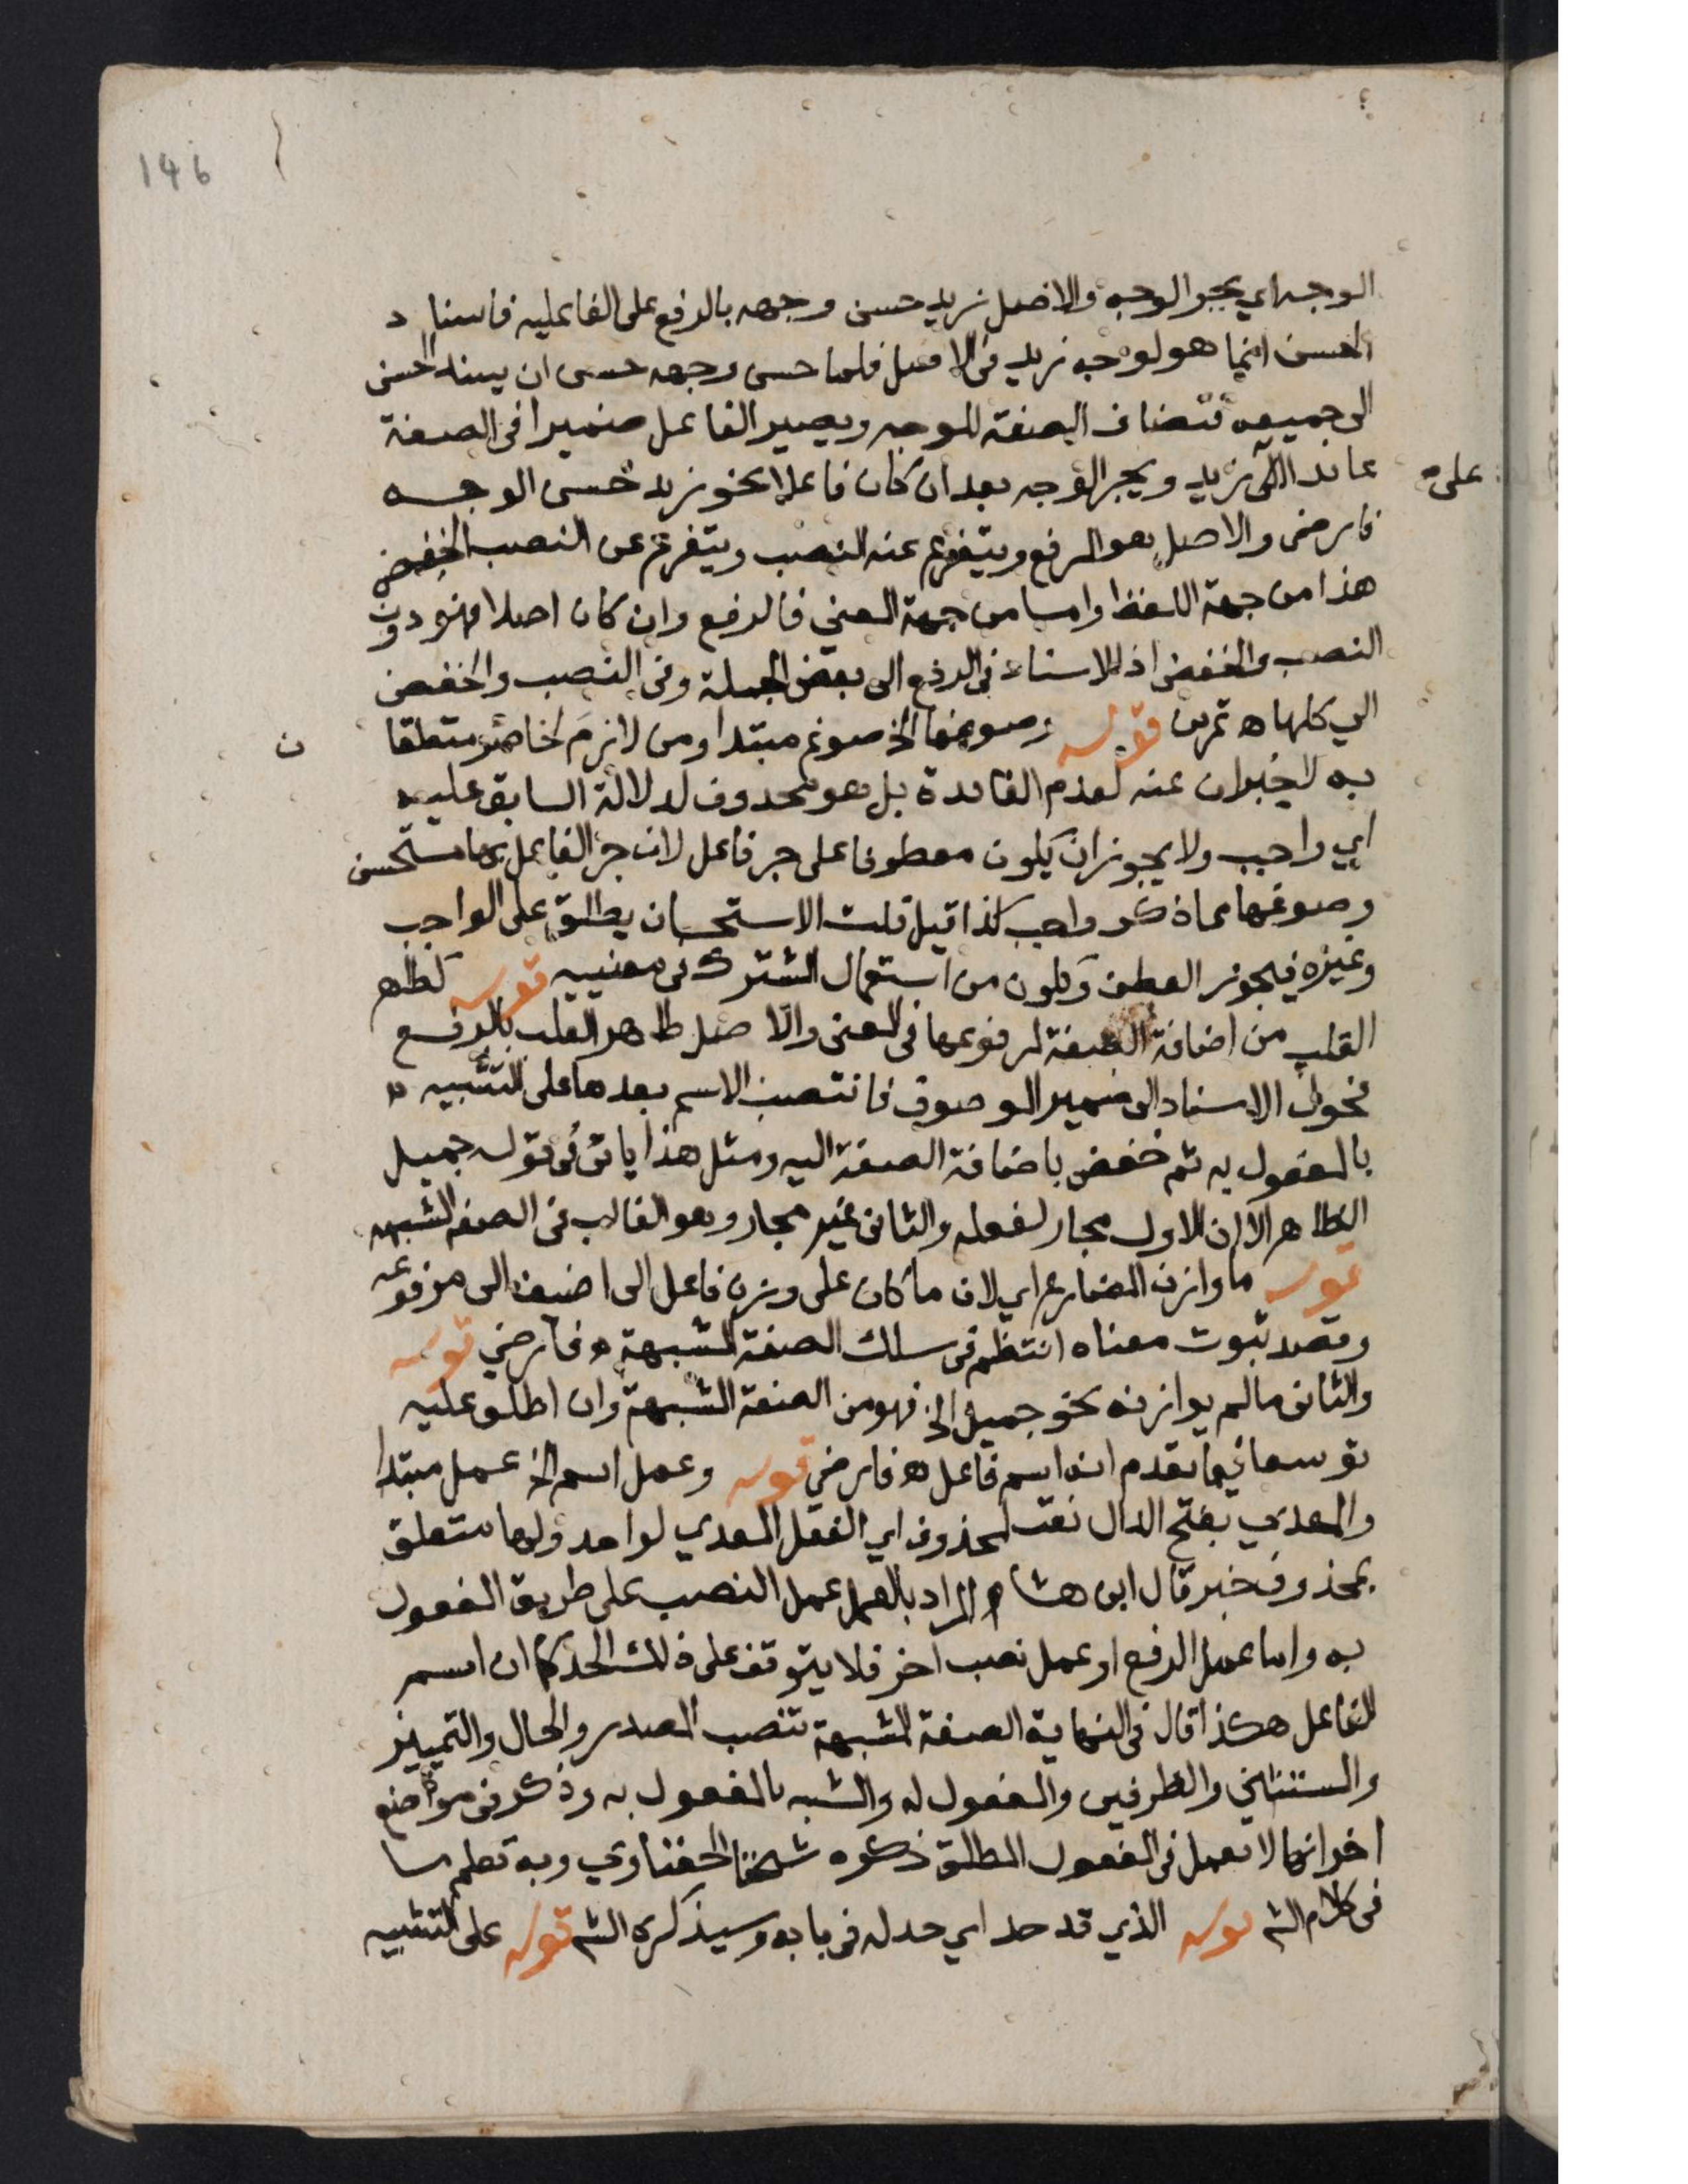 146
الوجه اي بجر الوجه والاصل زيد حسن وجهه بالرفع على الفاعليه فاسناد
الحسن انما هو لوجه زيد في الاصل فلما حسن وجهه حسن ان يسند الحسن
الى جميعه فتضاف الصفة للوجه ويصير الفاعل ضميرا في الصفة
عائدا الى زيد ويجر الوجه بعد ان كان فاعلا نحو زيد حسن الوجه
على
فارضى والاصل هو الرفع ويتفرع عنه النصب ويتفرع عن النصب الخفض
هذا من جهة اللفظ واما من جهة المعني فالرفع وان كان اصلا فهو دون
النصب والخفض اذ الاسناد في الرفع الى بعض الجملة وفي النصب والخفض
الي كلها ه تمرين قوله وصوغها الخ صوغ مبتدا ومن لازم لحاضر متعلقا
ن
به لا خبران عنه لعدم الفائدة بل هو محذوف لدلالة السابق عليه
اي واجب ولا يجوز ان يكون معطوفا على جر فاعل لان جر الفاعل بها مستحسن
وصوغها مما ذكر واجب كذا قيل قلت الاستحسان يطلق على الواجب
وغيره فيجوز العطف ويكون من استعمال المشترك في معنييه قوله كطاهر
القلب من اضافة الصفة لمرفوعها في المعنى والاصل طاهر القلب بالرفع
فحول الاسناد الى ضمير الموصوف فانتصب الاسم بعدها على التشبيه
بالمفعول به ثم خفض باضافة الصفة اليه ومثل هذا ياتي في قوله جميل
الظاهر الا ان الاول مجار لفعله والثاني غير مجار وهو الغالب في الصفه المشبهه
قوله ما وازن المضارع اي لان ما كان على وزن فاعل الى اضيف الى مرفوعه
وقصد ثبوت معناه انتظم في سلك الصفة المشبهة ه فارضي قوله
والثاني ما لم يوازنه نحو جميل الخ فهو من الصفة المشبهة وان اطلق عليه
توسعا فيما تقدم انه اسم فاعل ه فارضي قوله وعمل اسم الخ عمل مبتدا
والمعدي بفتح الدال نعت لمحذوف اي الفعل المعدي لواحد ولها متعلق
بمحذوف خبر قال ابن هشام والمراد بالعمل عمل النصب على طريق المفعول
به واما عمل الرفع او عمل نصب اخر فلا يتوقف على ذلك الحد كما ان اسم
الفاعل هكذا قال في النهاية الصفة المشبهة تنصب المصدر والحال والتمييز
والمستثنى والظرفين والمفعول له والمشبه بالمفعول به وذكر في مواضع
اخر انها لا تعمل في المفعول المطلق ذكره شيخنا الحفناوي وبه تعلم ما
في كلام الش قوله الذي قد حد اي حد له في بابه وسيذكره الش قوله على التشبيه